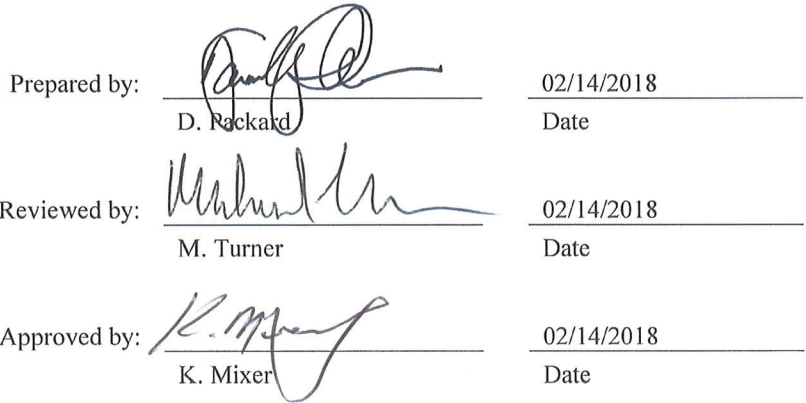 Prepared by: 02/14/2018
D. Packard Date
Reviewed by: 02/14/2018
M. Turner Date
Approved by: K. Mixer 02/14/2018
K. Mixer Date